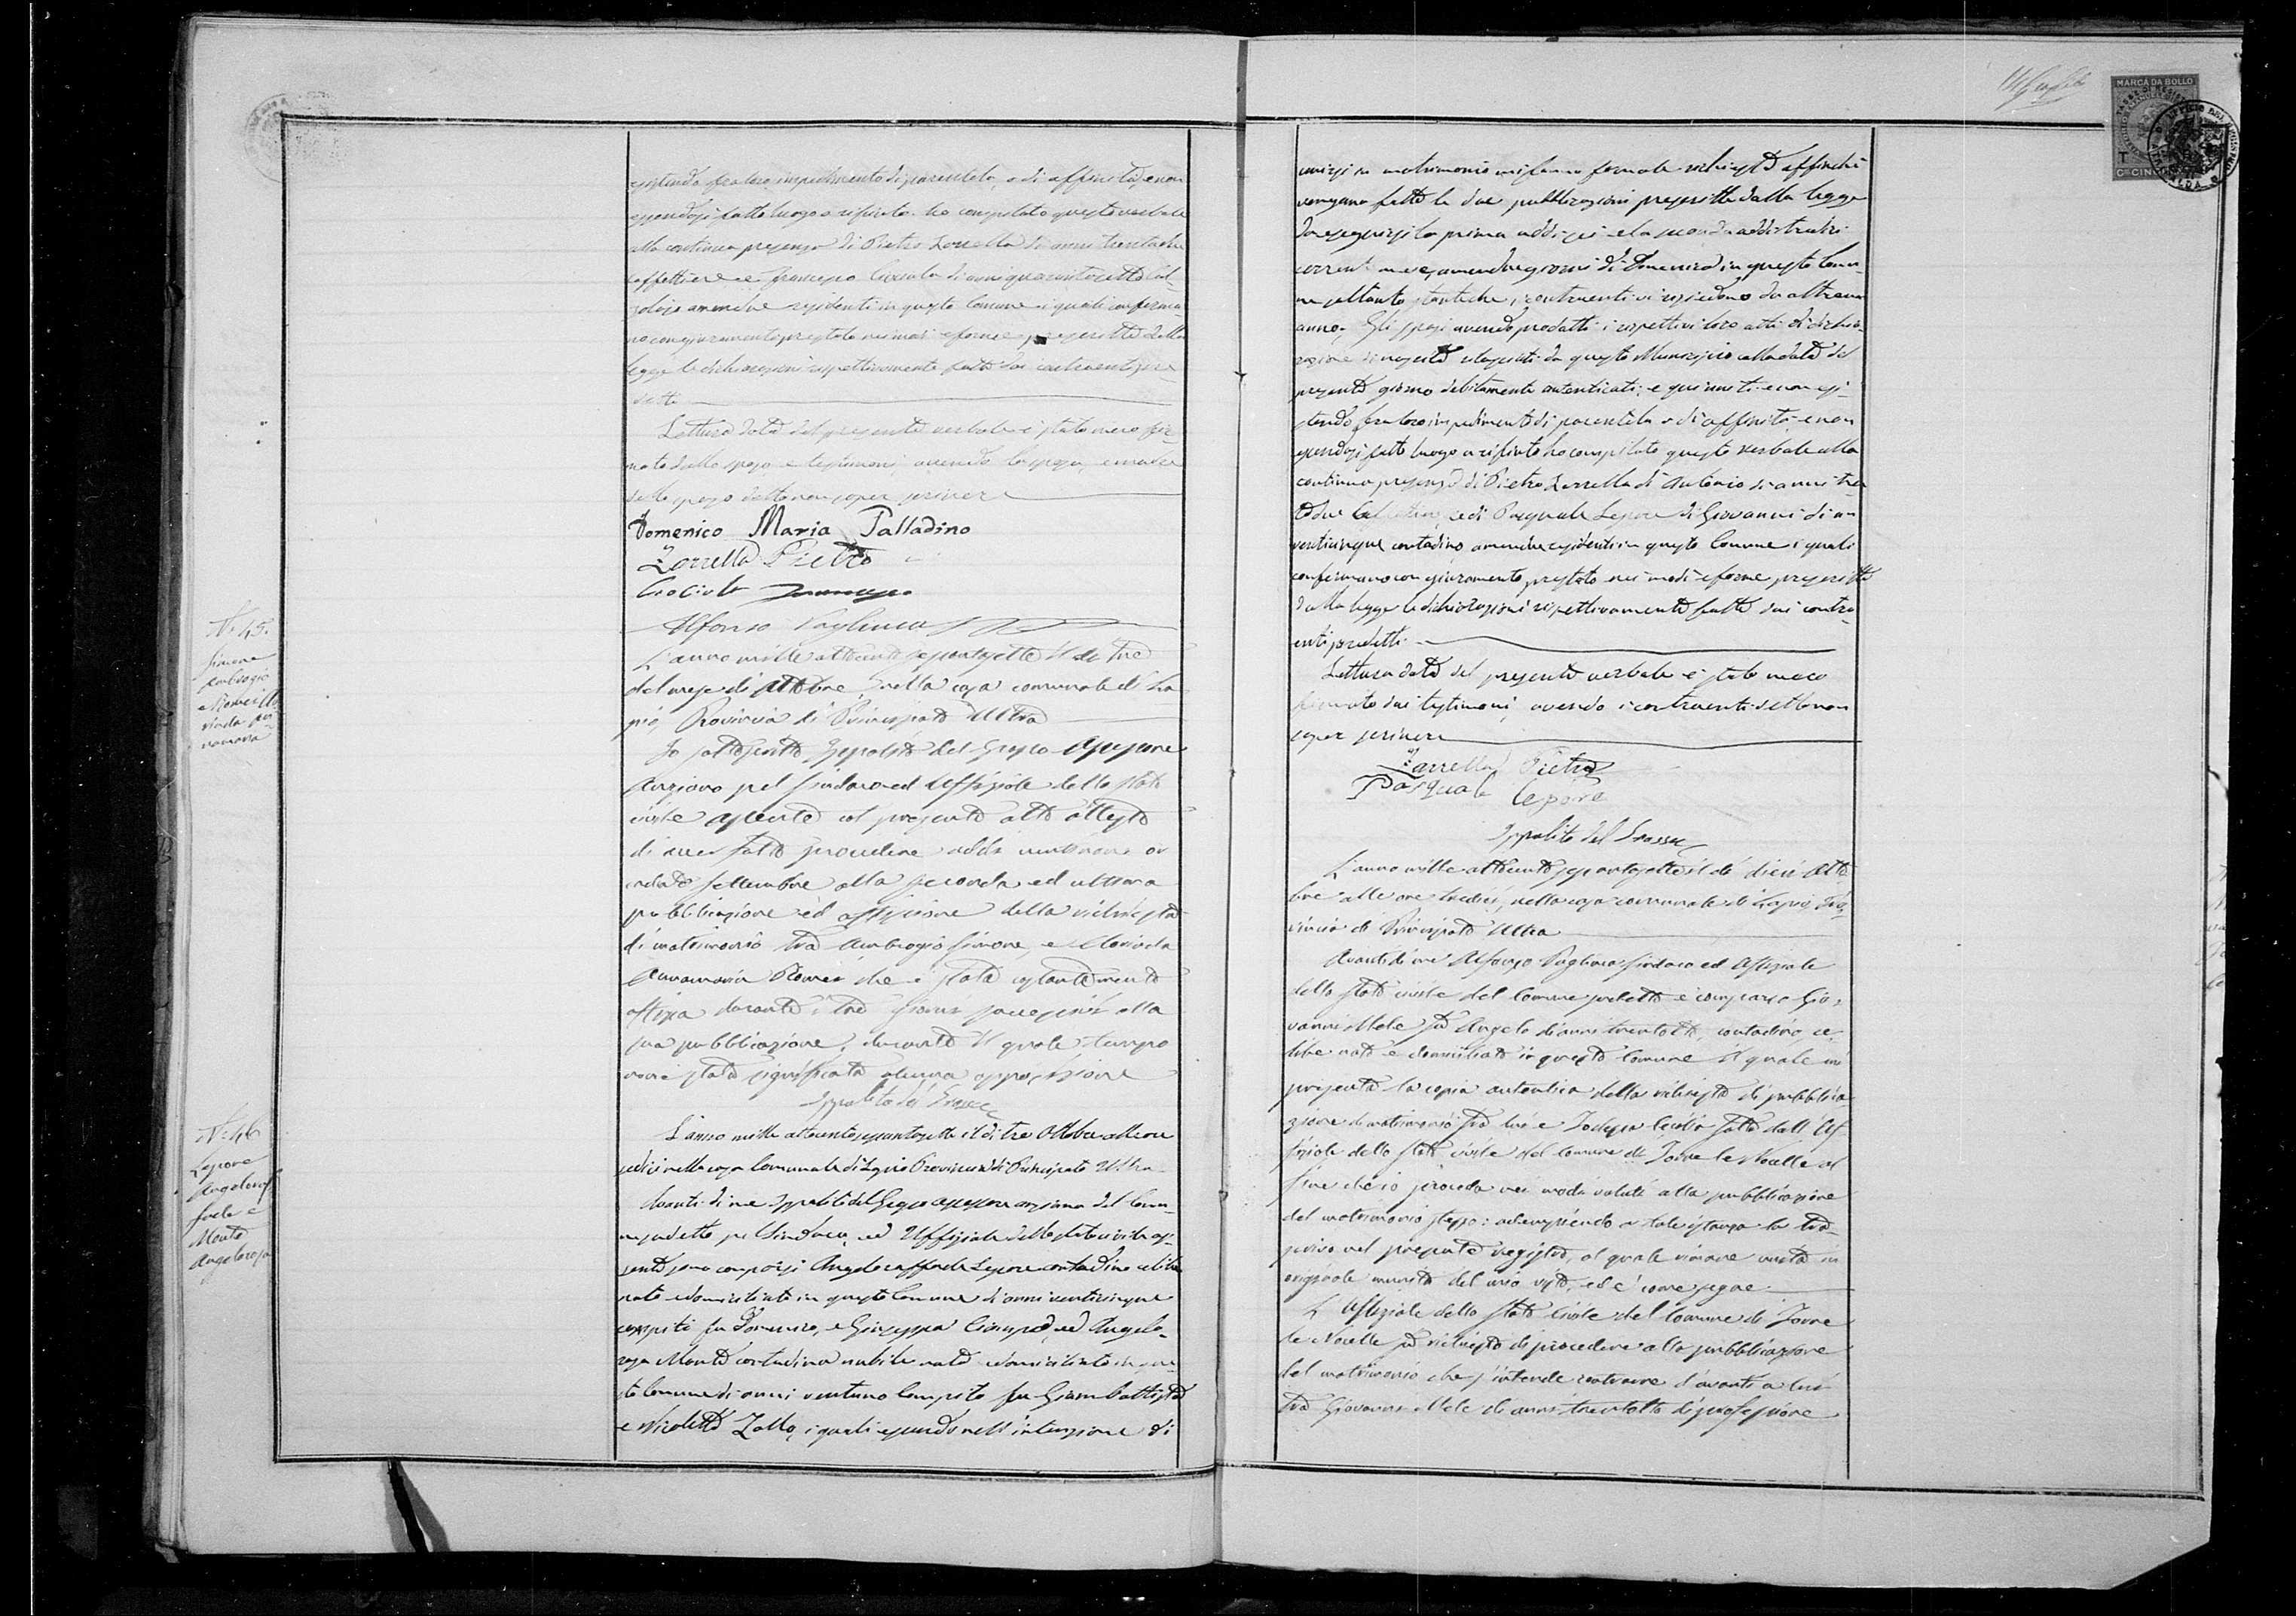 esistendo fra loro impedimento di parentela, o di affinità, e non
essendosi fatto luogo a rifiuto ho compilato questo verbale
alla continua presenza di Pietro Zarrella di anni trentadue
caffettiere e Francesco Ciociola di anni quarantasette Cal-
zolajo amendue residenti in questo Comune i quali conferma-
no con giuramento prestato nei modi e forme prescritte dalla
legge le dichiarazioni rispettivamente fatte dai contraenti pre
detti
Lettura data del presente verbale è stato meco fir-
mato dallo sposo e testimoni, avendo la sposa, e madre
dello sposo detto non saper scrivere
Domenico Maria Palladino
Zarrella Pietro
Ciociola Francesco
Alfonso
N. 45.
Simone
Ambrogio
e Romei
L'anno mille ottocento sessantasette il dì tre
del mese di Ottobre, nella casa comunale di La
pio, Provincia di Principato Ultra
Io sottoscritto Ippolito del Grosso Assessore
Anziano pel Sindaco ed Uffiziale dello stato
civile assente col presente atto attesto
di aver fatto procedere addì ventinove or
Settembre alla seconda ed ultima
pubblicazione ed affissione della richiesta
di matrimonio tra Ambrogio Simone, e
Annamaria Romei che è stata costantemente
affissa durante i tre giorni successivi alla
sua pubblicazione, durante il quale tempo
non è stata significata alcuna opposizione
Ippolito del Grosso
N. 46
Lepore
Angeloraf
faele e
Monte
Angelarosa
L'anno mille ottocento sessantasette il dì tre Ottobre alle ore
sedici nella casa Comunale di Lapio Provincia di Principato Ultra
Avanti di me Ippolito del Grosso assessore anziano del Comu-
ne predetto pel Sindaco, ed Uffiziale dello stato civile as-
sente sono comparsi Angeloraffaele Lepore contadino celibe
nato e domiciliato in questo Comune di anni venticinque
compiti fu Domenico, e Giuseppa Ciampa, ed Angela-
rosa Monte contadina nubile nata e domiciliata in que-
sto Comune di anni ventuno compiti fu Giambattista
e Nicoletta Zallo, i quali essendo nell'intenzione di
unirsi in matrimonio mi fanno formale richiesta affinché
vengano fatte le due pubblicazioni prescritte dalla legge
da eseguirsi la prima addì sei e la seconda addì tredici
corrente mese amendue giorni di Domenica in questo Comu-
ne soltanto stanteché i contraenti vi risiedono da oltre un
anno. Gli sposi avendo prodotti i rispettivi loro atti di dichia-
razione di nascita rilasciati da questo Municipio colla data del
presente giorno debitamente autenticati e e non esi-
stendo fra loro impedimenti di parentela o di affinità, e non
essendosi fatto luogo a rifiuto ho compilato questo verbale alla
continua presenza di Pietro Zarrella di Antonio di anni tren
tadue e di Pasquale Lepore di Giovanni di an
venticinque contadino amendue residenti in questo Comune i quali
confermano con giuramento prestato nei modi e forme prescritte
dalla legge le dichiarazioni rispettivamente fatte dai contra
enti predetti
Lettura data del presente verbale è stato meco
firmato dai testimoni, avendo i contraenti detto non
saper scrivere
Zarrella Pietro
Pasquale Lepore
Ippolito del Grosso
L'anno mille ottocento sessantasette il dì dieci Otto
bre alle ore tredici, nella casa comunale di Lapio, Pro-
vincia di Principato Ultra
Avanti di me Alfonso Sindaco ed Uffiziale
dello stato civile del Comune predetto è comparso Gio-
vanni Mele fu Angelo di anni trentotto, contadino, ce-
libe nato e domiciliato in questo Comune il quale mi
presenta la copia autentica della richiesta di pubblica
zione di matrimonio fra lui e fatta dall'Uf-
fiziale dello stato civile del Comune di Torre le Nocelle al
fine che io proceda nei modi voluti alla pubblicazione
del matrimonio stesso: adempiendo a tale istanza la tra-
scrivo nel presente registro, al quale rimane unita in
originale munita del mio visto, ed è come segue
L'Uffiziale dello Stato Civile del Comune di Torre
le Nocelle fa richiesta di procedere alla pubblicazione
del matrimonio che s'intende contrarre d'avanti a lui
tra Giovanni Mele di anni trentotto di professione
MARCA DA BOLLO